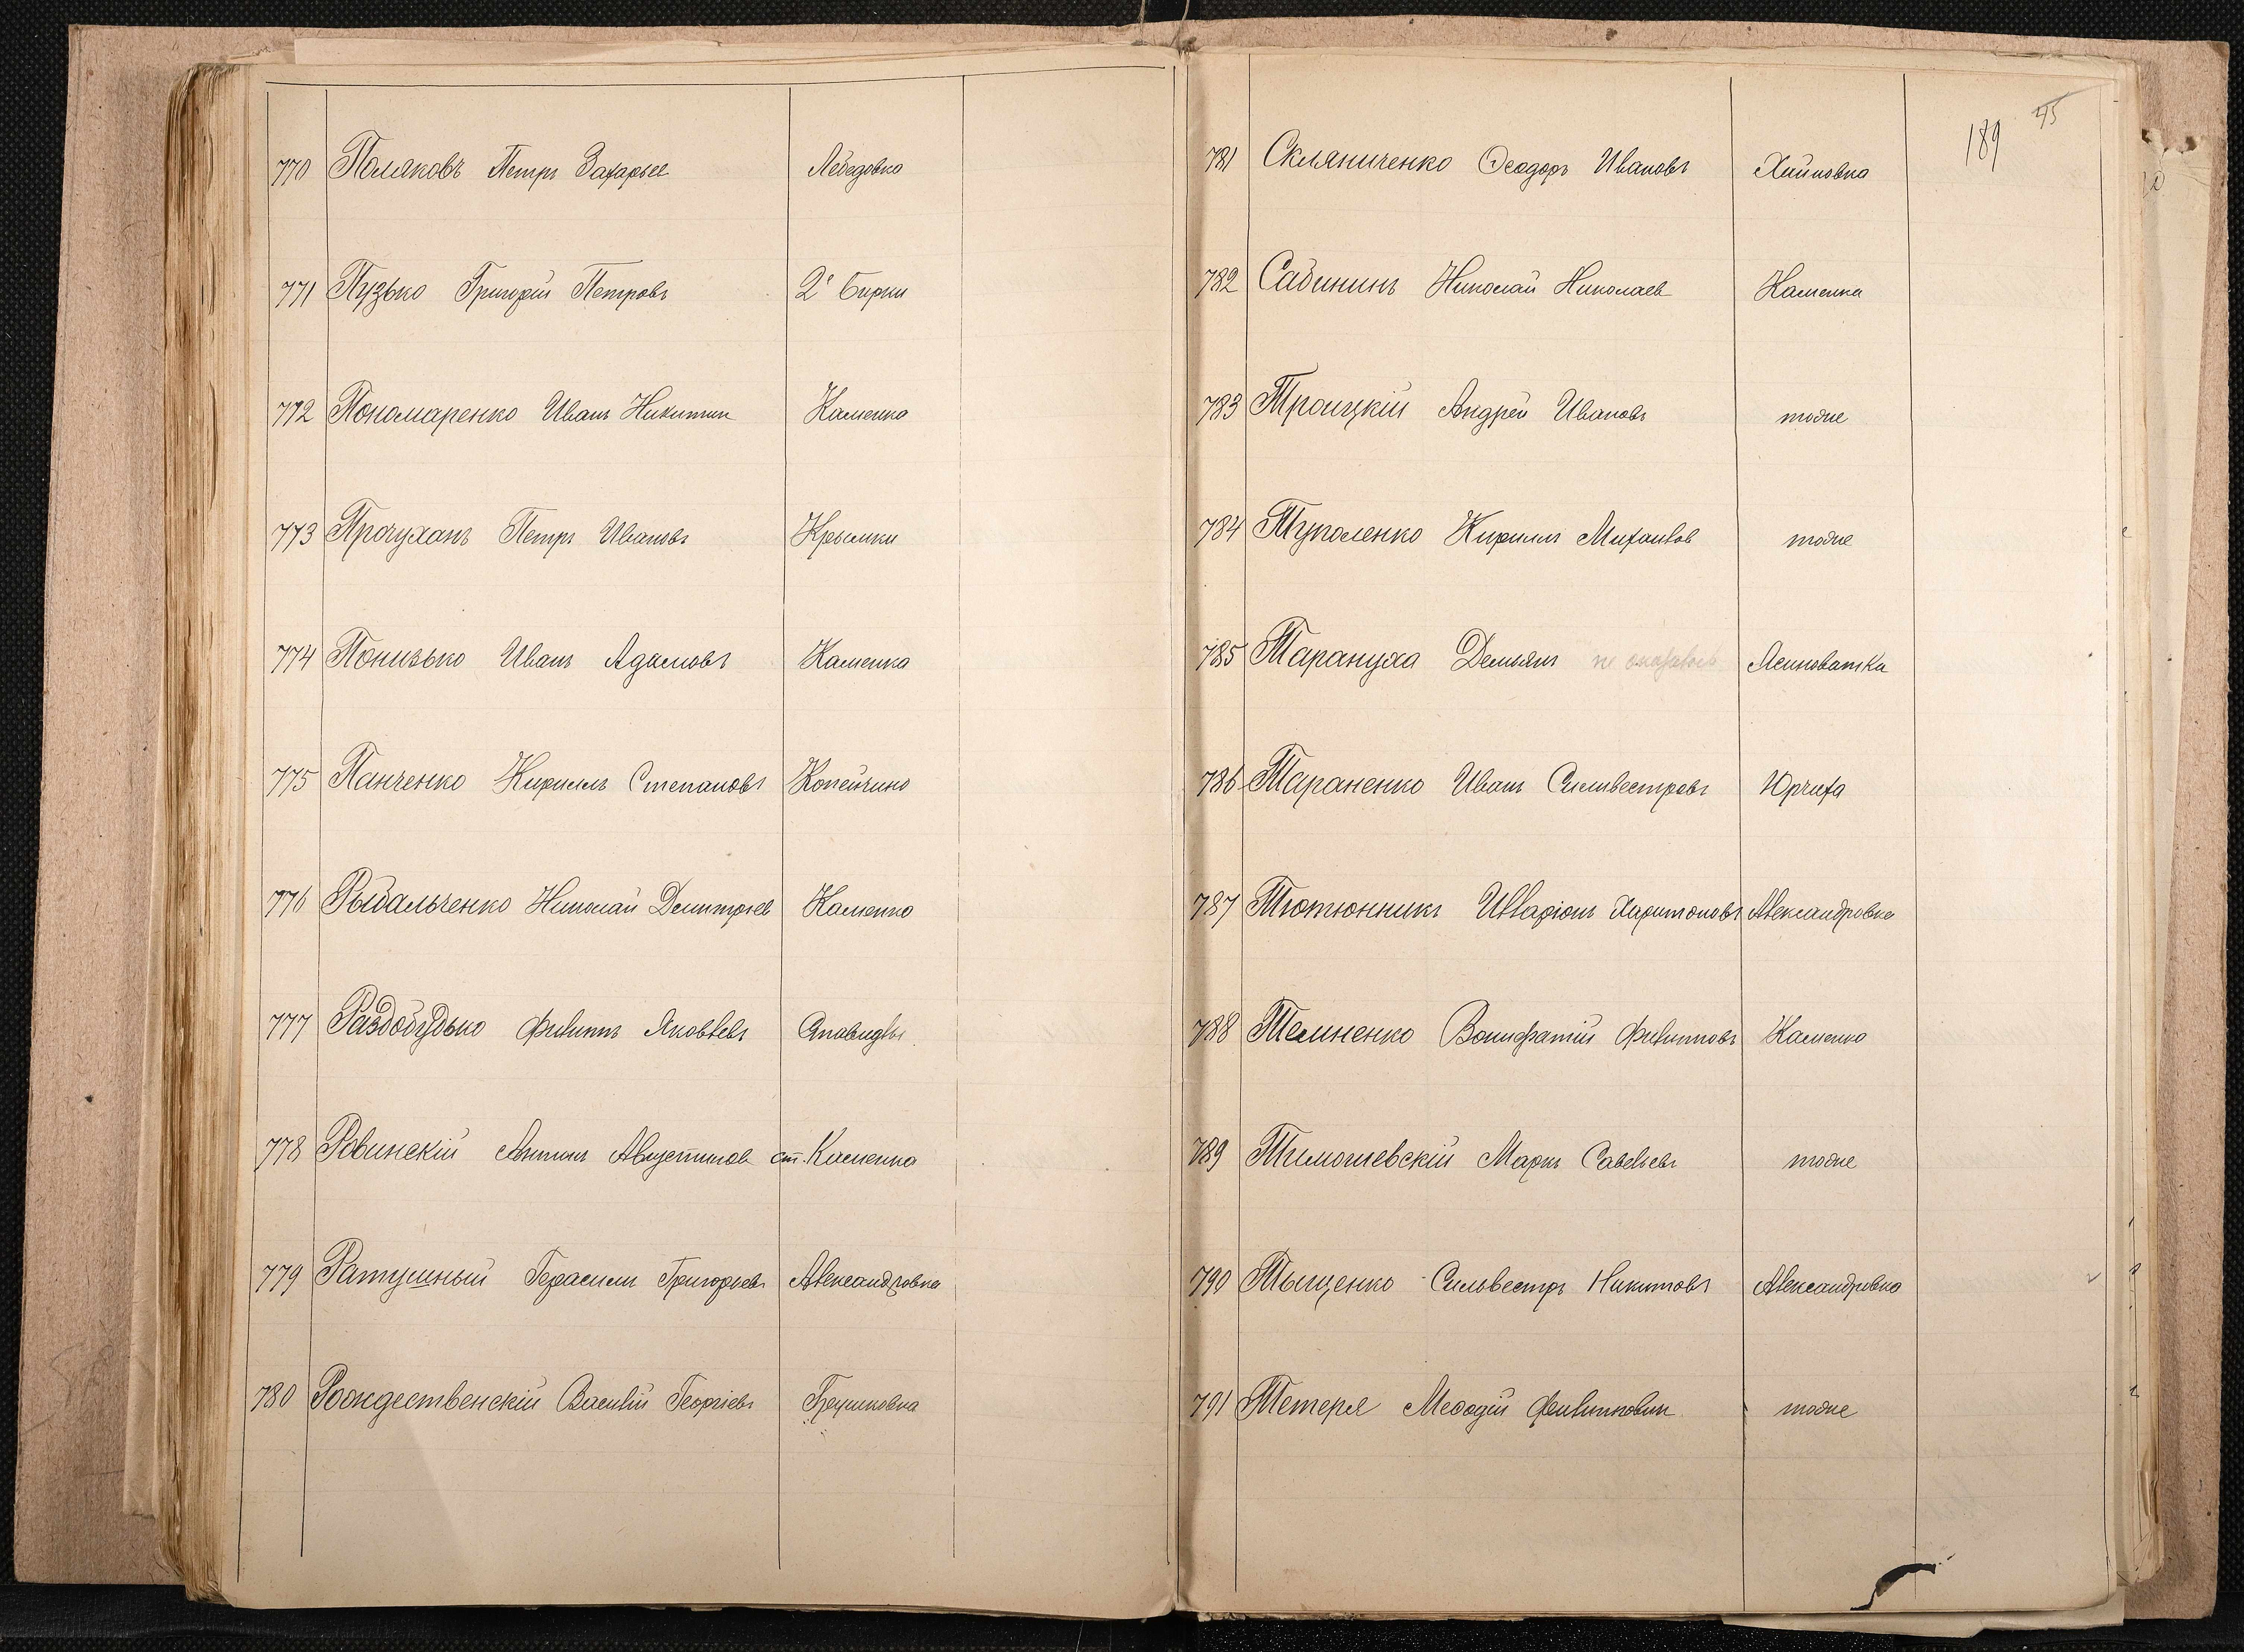 770 Поляковъ Петръ Захарьев Лебедовка
771 Пузько Григорій Петровъ 2е Бирки
772 Пономаренко Иванъ Никитин Каменка
773 Прочуханъ Петръ Ивановъ Крымки
774 Понизько Иванъ Адамовъ Каменка
775 Панченко Кириллъ Степановъ Копейчино
776 Рыбальченко Николай Дмитріев Каменка
777 Раздобудько Филиппъ Яковлевъ Ставидлы
778 Ровинскій Антонъ Августинов ст. Каменка
779 Ратушный Герасимъ Григорьевъ Александровка
780 Рождественскій Василій Георгіевъ Грушковка
189 45
781 Скляниченко Ѳеодоръ Ивановъ Хайновка
782 Сабининъ Николай Николаев Каменка
783 Троицкій Андрей Ивановъ тоже
784 Туполенко Кириллъ Михайлов тоже
785 Тарануха Демьянъ не оказалось Ясиноватка
786 Тараненко Иванъ Сильвестровъ Юрчиха
787 Тютюнникъ Илларіонъ Харитоновъ Александровка
788 Темненко Вонифатій Филипповъ Каменка
789 Тимошевскій Маркъ Савельевъ тоже
790 Тыщенко Сильвестръ Никитовъ Александровка
791 Тетеря Меѳодій Филиппович тоже